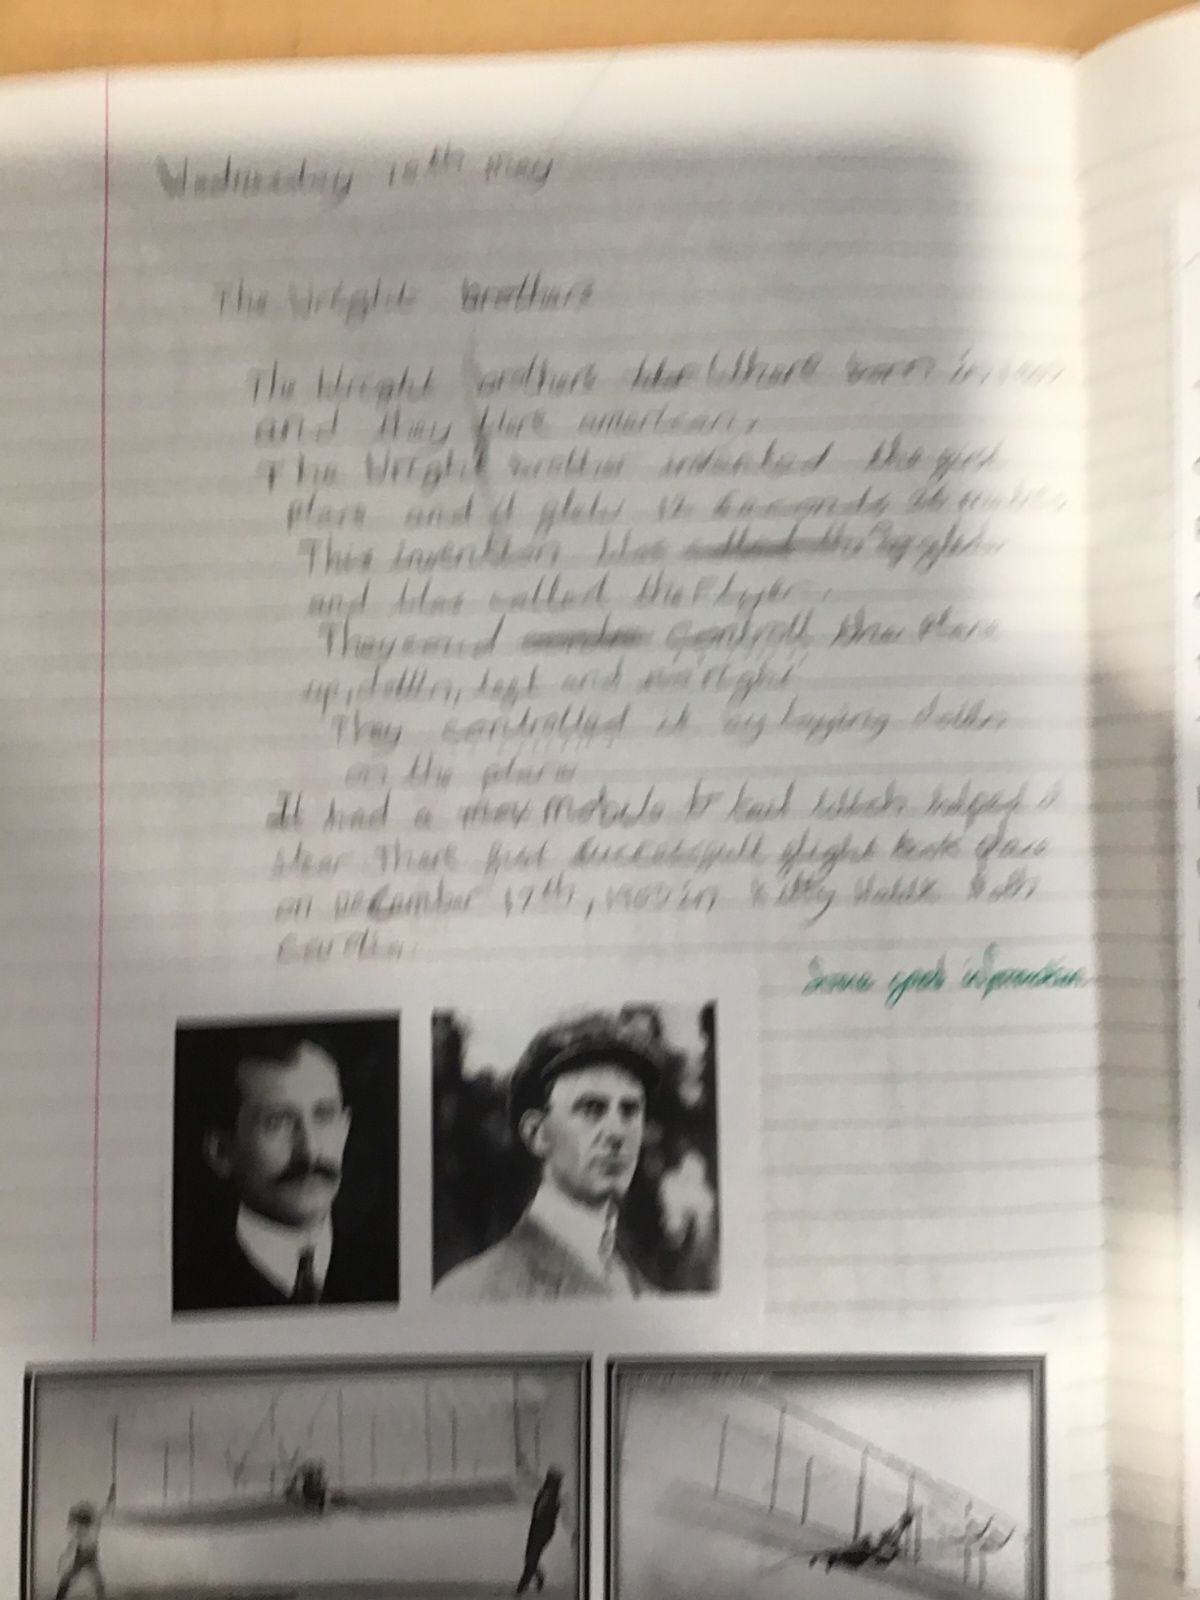 Wednesday 10th May
The Wright Brothers
The Wright brothers Where born in
and they Were american.
The Wright brother invented the
plane and it flew 12 seconds 36
This invention Was
and Was called the Flyer.
They coud controll the Plane
up, down, left and right
They controlled it by laying down
on the plane
It had a tail Which helped it
stear There first successfull flight took place
on December 17th, 1903 in Kitty Hawk
Some good information